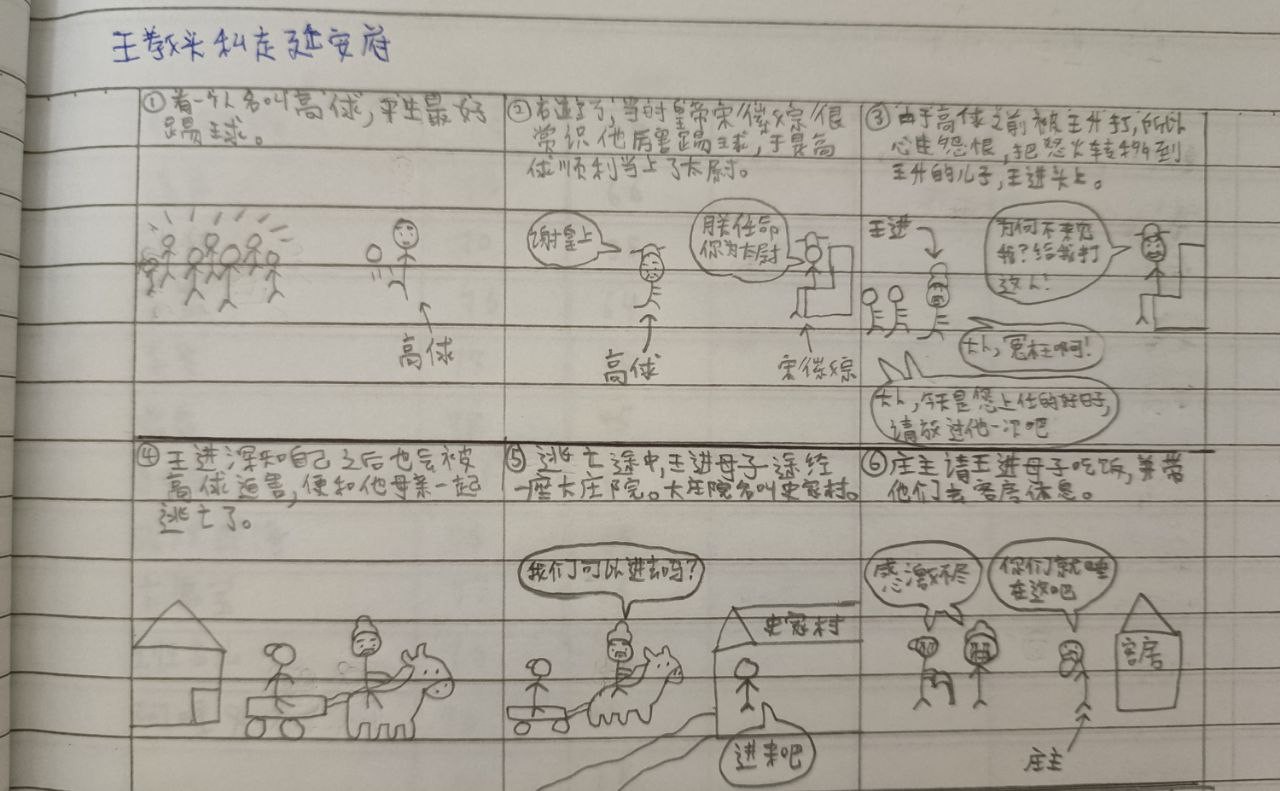 王教头私走延安府
①有一个人名叫高俅,平生最好
踢球。
高俅
②
当时皇帝宋徽宗很
赏识他厉害踢球,于是高
俅顺利当上了太尉。
谢皇上
朕任命
你为太尉
高俅
宋徽宗
③由于高俅之前被王升打,所以
心生怨恨,把怒火转移到
王升的儿子,王进头上。
王进
为何不来见
我?给我打
这人!
大人,冤枉啊!
大人,今天是您上任的好日子,
请放过他一次吧
④王进深知自己之后也会被
高俅迫害,便和他母亲一起
逃亡了。
⑤逃亡途中,王进母子途经
一座大庄院。大庄院名叫史家村。
我们可以进去吗?
史家村
进来吧
⑥庄主请王进母子吃饭,并带
他们去客房休息。
感激不尽
你们就睡
在这吧
客房
庄主